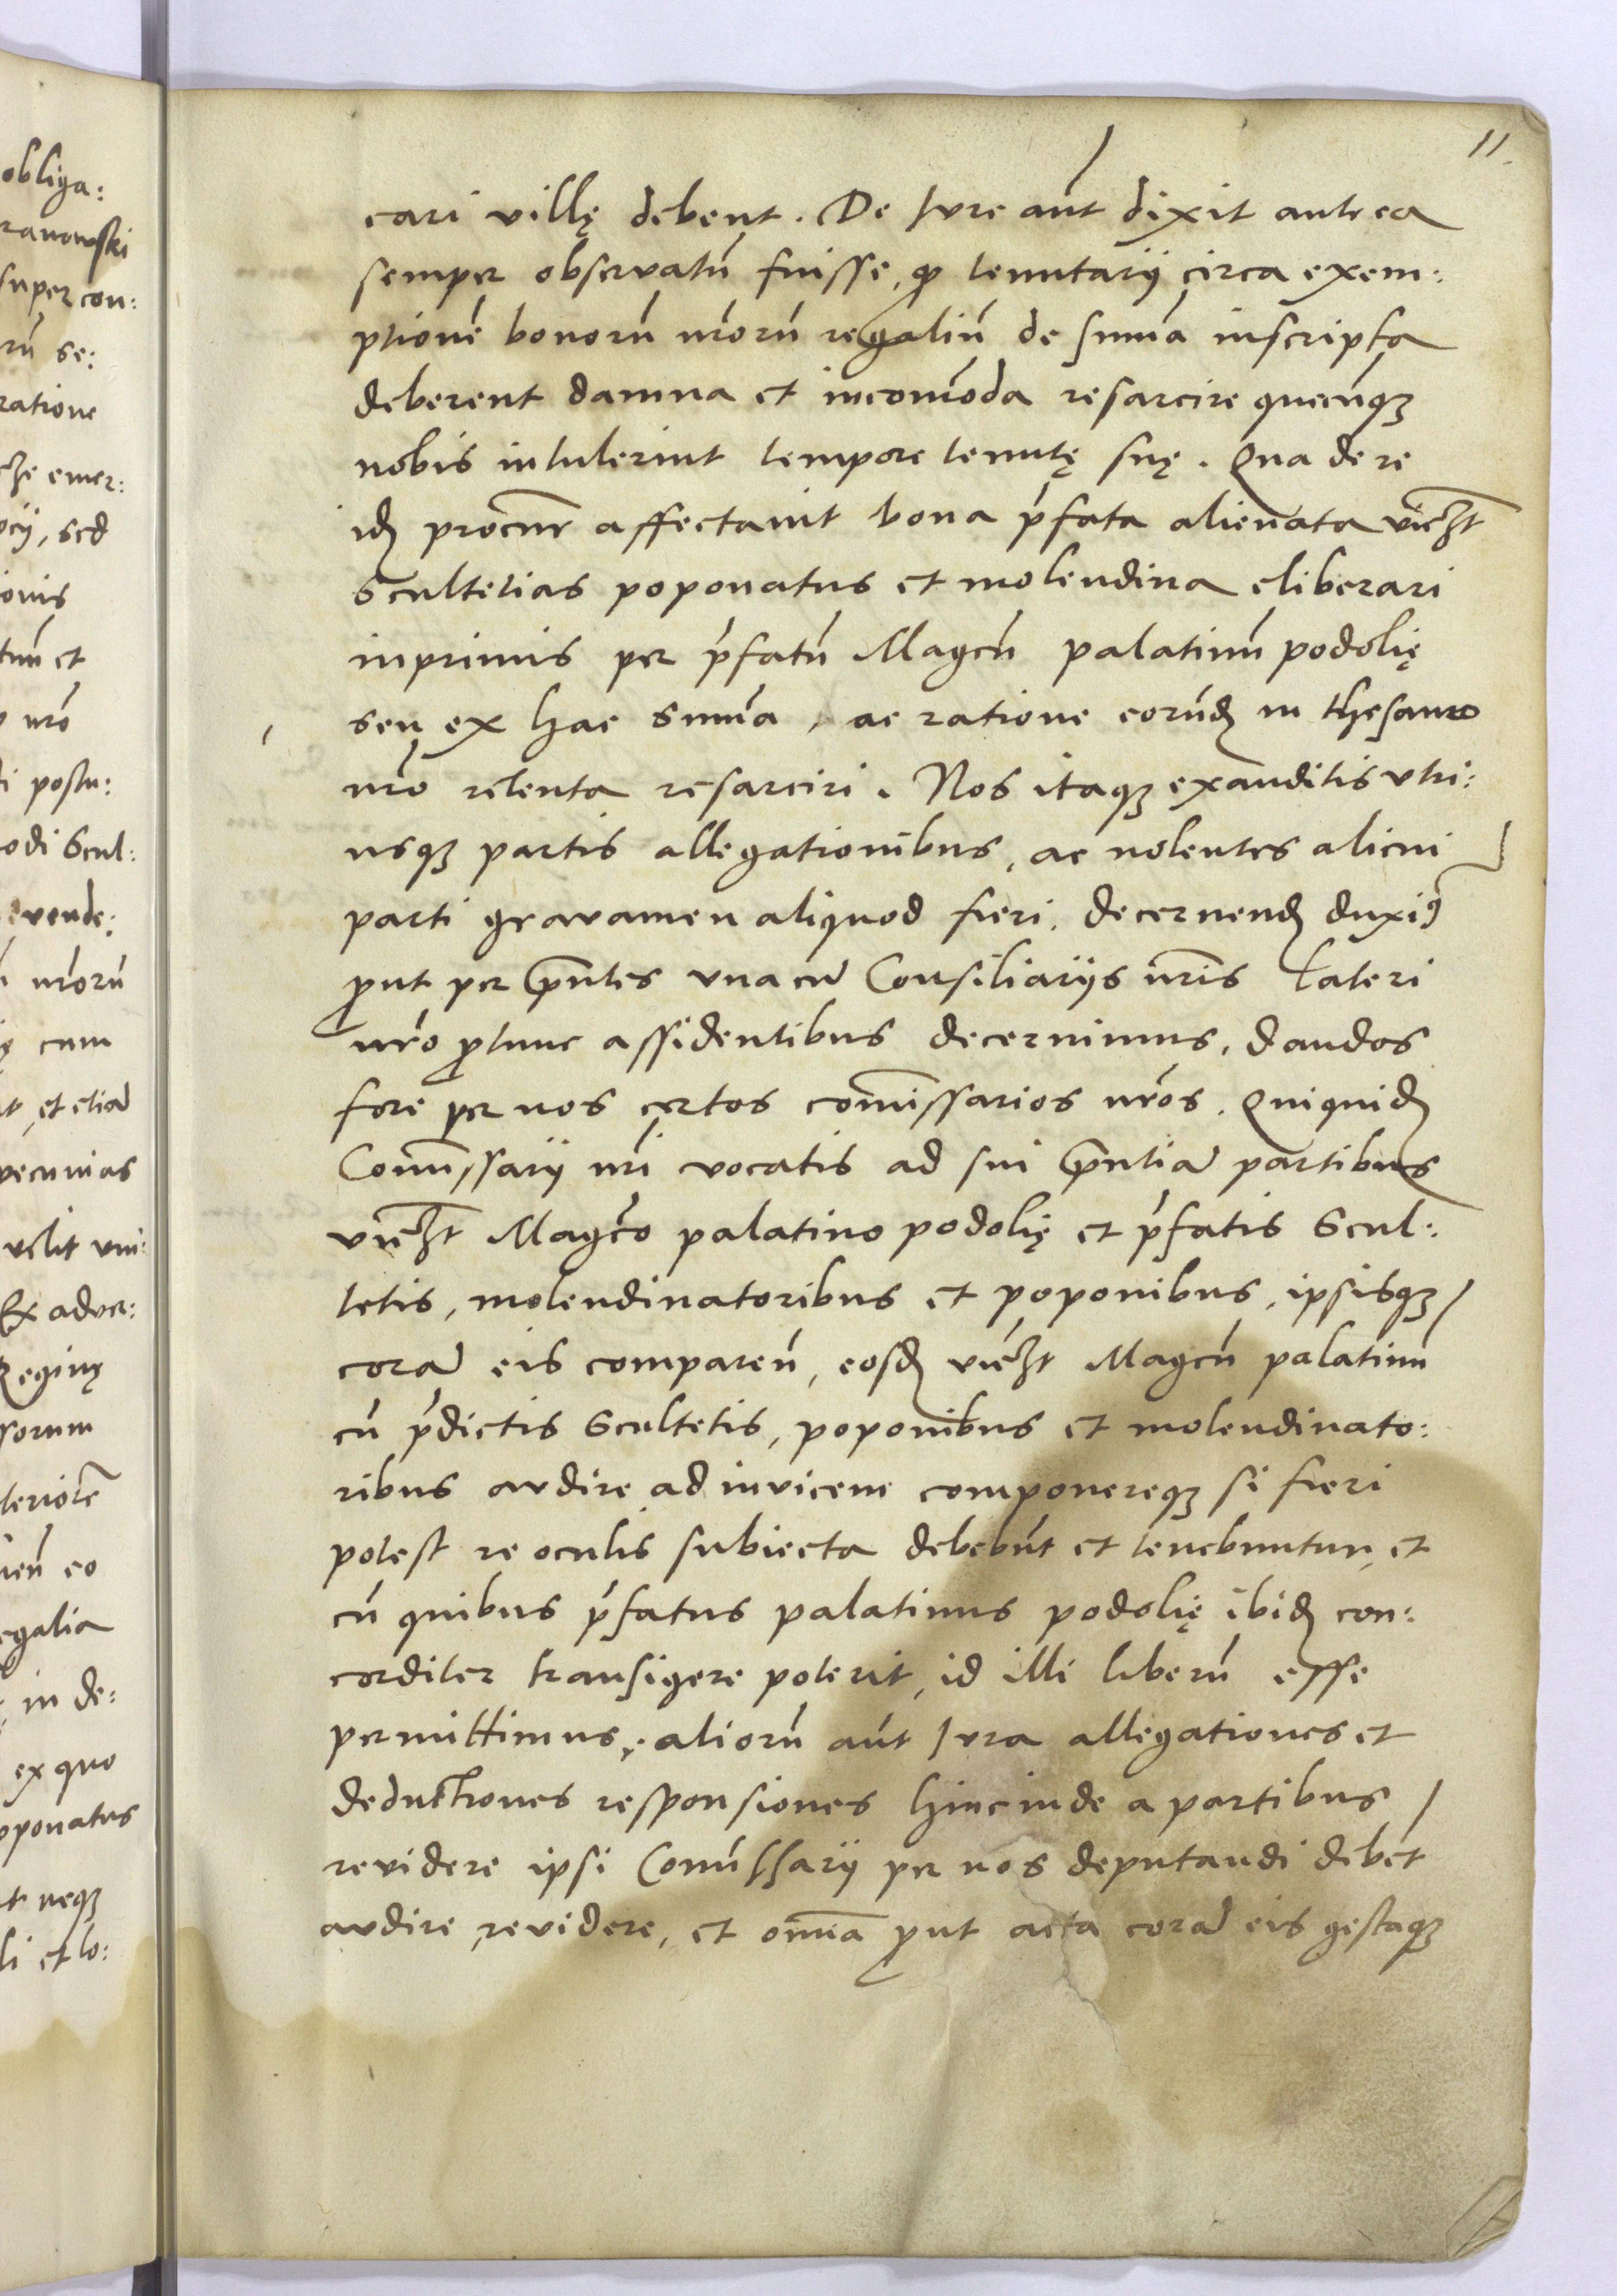 obliga:
ranowski
super con:
rū se:
ratione
emer:
ocÿ, sed
ionis
tum et
nr̃o
di postu:
odi Scul:
evende:
nr̃orū
cum
et etiā
pecunias
velit
Ex adver:
Reginę
ssorum
teriorē
eo
egalia
in de:
ex quo
oponatus
neqꝫ
li et lo:
11.
cari villę debent. De Iure aūt dixit antea
semper observatū fuisse, ꝙ tenutarÿ circa exem:
ptionē bonorū nr̃orū regaliū de sum̄a inscripta
deberent damna et incom̄oda resarcire quecūqꝫ
nobis intulerint tempore tenutę suę. Qua de re
idꝫ procur̄ affectavit bona p̄fata alienata vičꝫt
Scultetias poponatus et molendina eliberari
inprimis per p̄fatū Mag̃cū palatinū podolię
seu ex hac Sum̄a, ac ratione eorūdꝫ in thesauro
nr̃o retenta resarciri. Nos itaqꝫ exauditis utri:
usqꝫ partis allegationibus, ac nolentes alicui
parti gravamen aliquod fieri, decernendꝫ duxiꝰ
ꝓut per p̃ntes una cū Consiliarÿs nr̃is lateri
nr̃o ꝓtunc assidentibus decernimus, dandos
fore per nos certos com̄issarios nr̃os. Quiquidꝫ
Com̄issarÿ nr̃i vocatis ad sui p̃ntiā partibus
vičꝫt Mag̃co palatino podolię et p̄fatis Scul:
tetis, molendinatoribus et poponibus, ipsisqꝫ
corā eis comparen̄, eosdꝫ vičꝫt Mag̃cū palatinū
cū p̄dictis Scultetis, poponibus et molendinato:
ribus audire ad invicem componereqꝫ si fieri
potest re oculis subiecta debebūt et tenebuntur, et
cū quibus p̄fatus palatinus podolię ibidꝫ con:
corditer transigere poterit, id illi liberū esse
permittimus, aliorū aūt Iura allegationes et
deductiones responsiones hinc inde a partibus
revidere ipsi Com̄issarÿ per nos deputandi debēt
audire, revidere, et om̄ia ꝓut acta corā eis gestaqꝫ